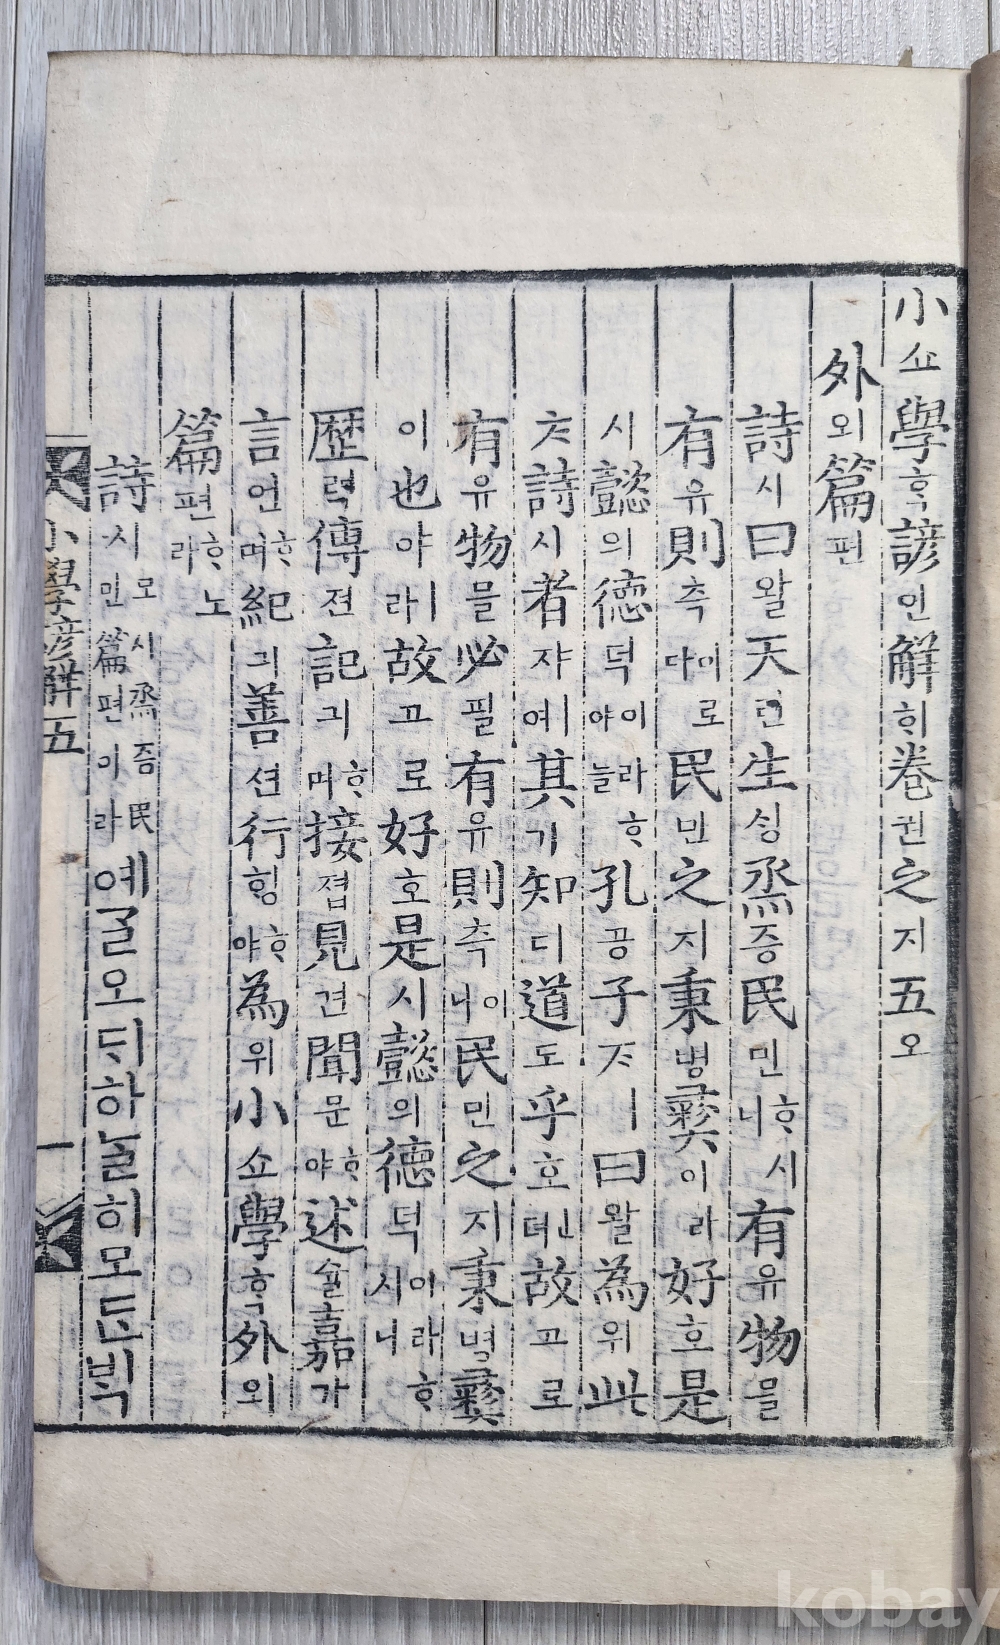 小쇼學ᄒᆞᆨ諺언解ᄒᆡ卷권之지五오
外외篇편
詩시曰왈天텬生ᄉᆡᆼ烝증民민ᄒᆞ시니有유物믈
有유則측이로다民민之지秉병彛이라好호是
시懿의德덕이라ᄒᆞ야늘孔공子ᄌᆞㅣ曰왈為위此
ᄎᆞ詩시者쟈ㅣ여其기知디道도乎호ᅟᅵᆫ뎌故고로
有유物믈必필有유則측이니民민之지秉병彛
이也야ㅣ라故고로好호是시懿의德덕이라ᄒᆞ시니
歷력傳젼記긔ᄒᆞ며接졉見견聞문ᄒᆞ야述슐嘉가
言언ᄒᆞ며紀긔善션行ᄒᆡᆼᄒᆞ야為위小쇼學ᄒᆞᆨ外외
篇편ᄒᆞ노라
詩시모시烝증民민篇편이라예ᄀᆞᆯ오ᄃᆡ하ᄂᆞᆯ히모ᄃᆞᆫᄇᆡᆨ
小學諺解五 一
kobay